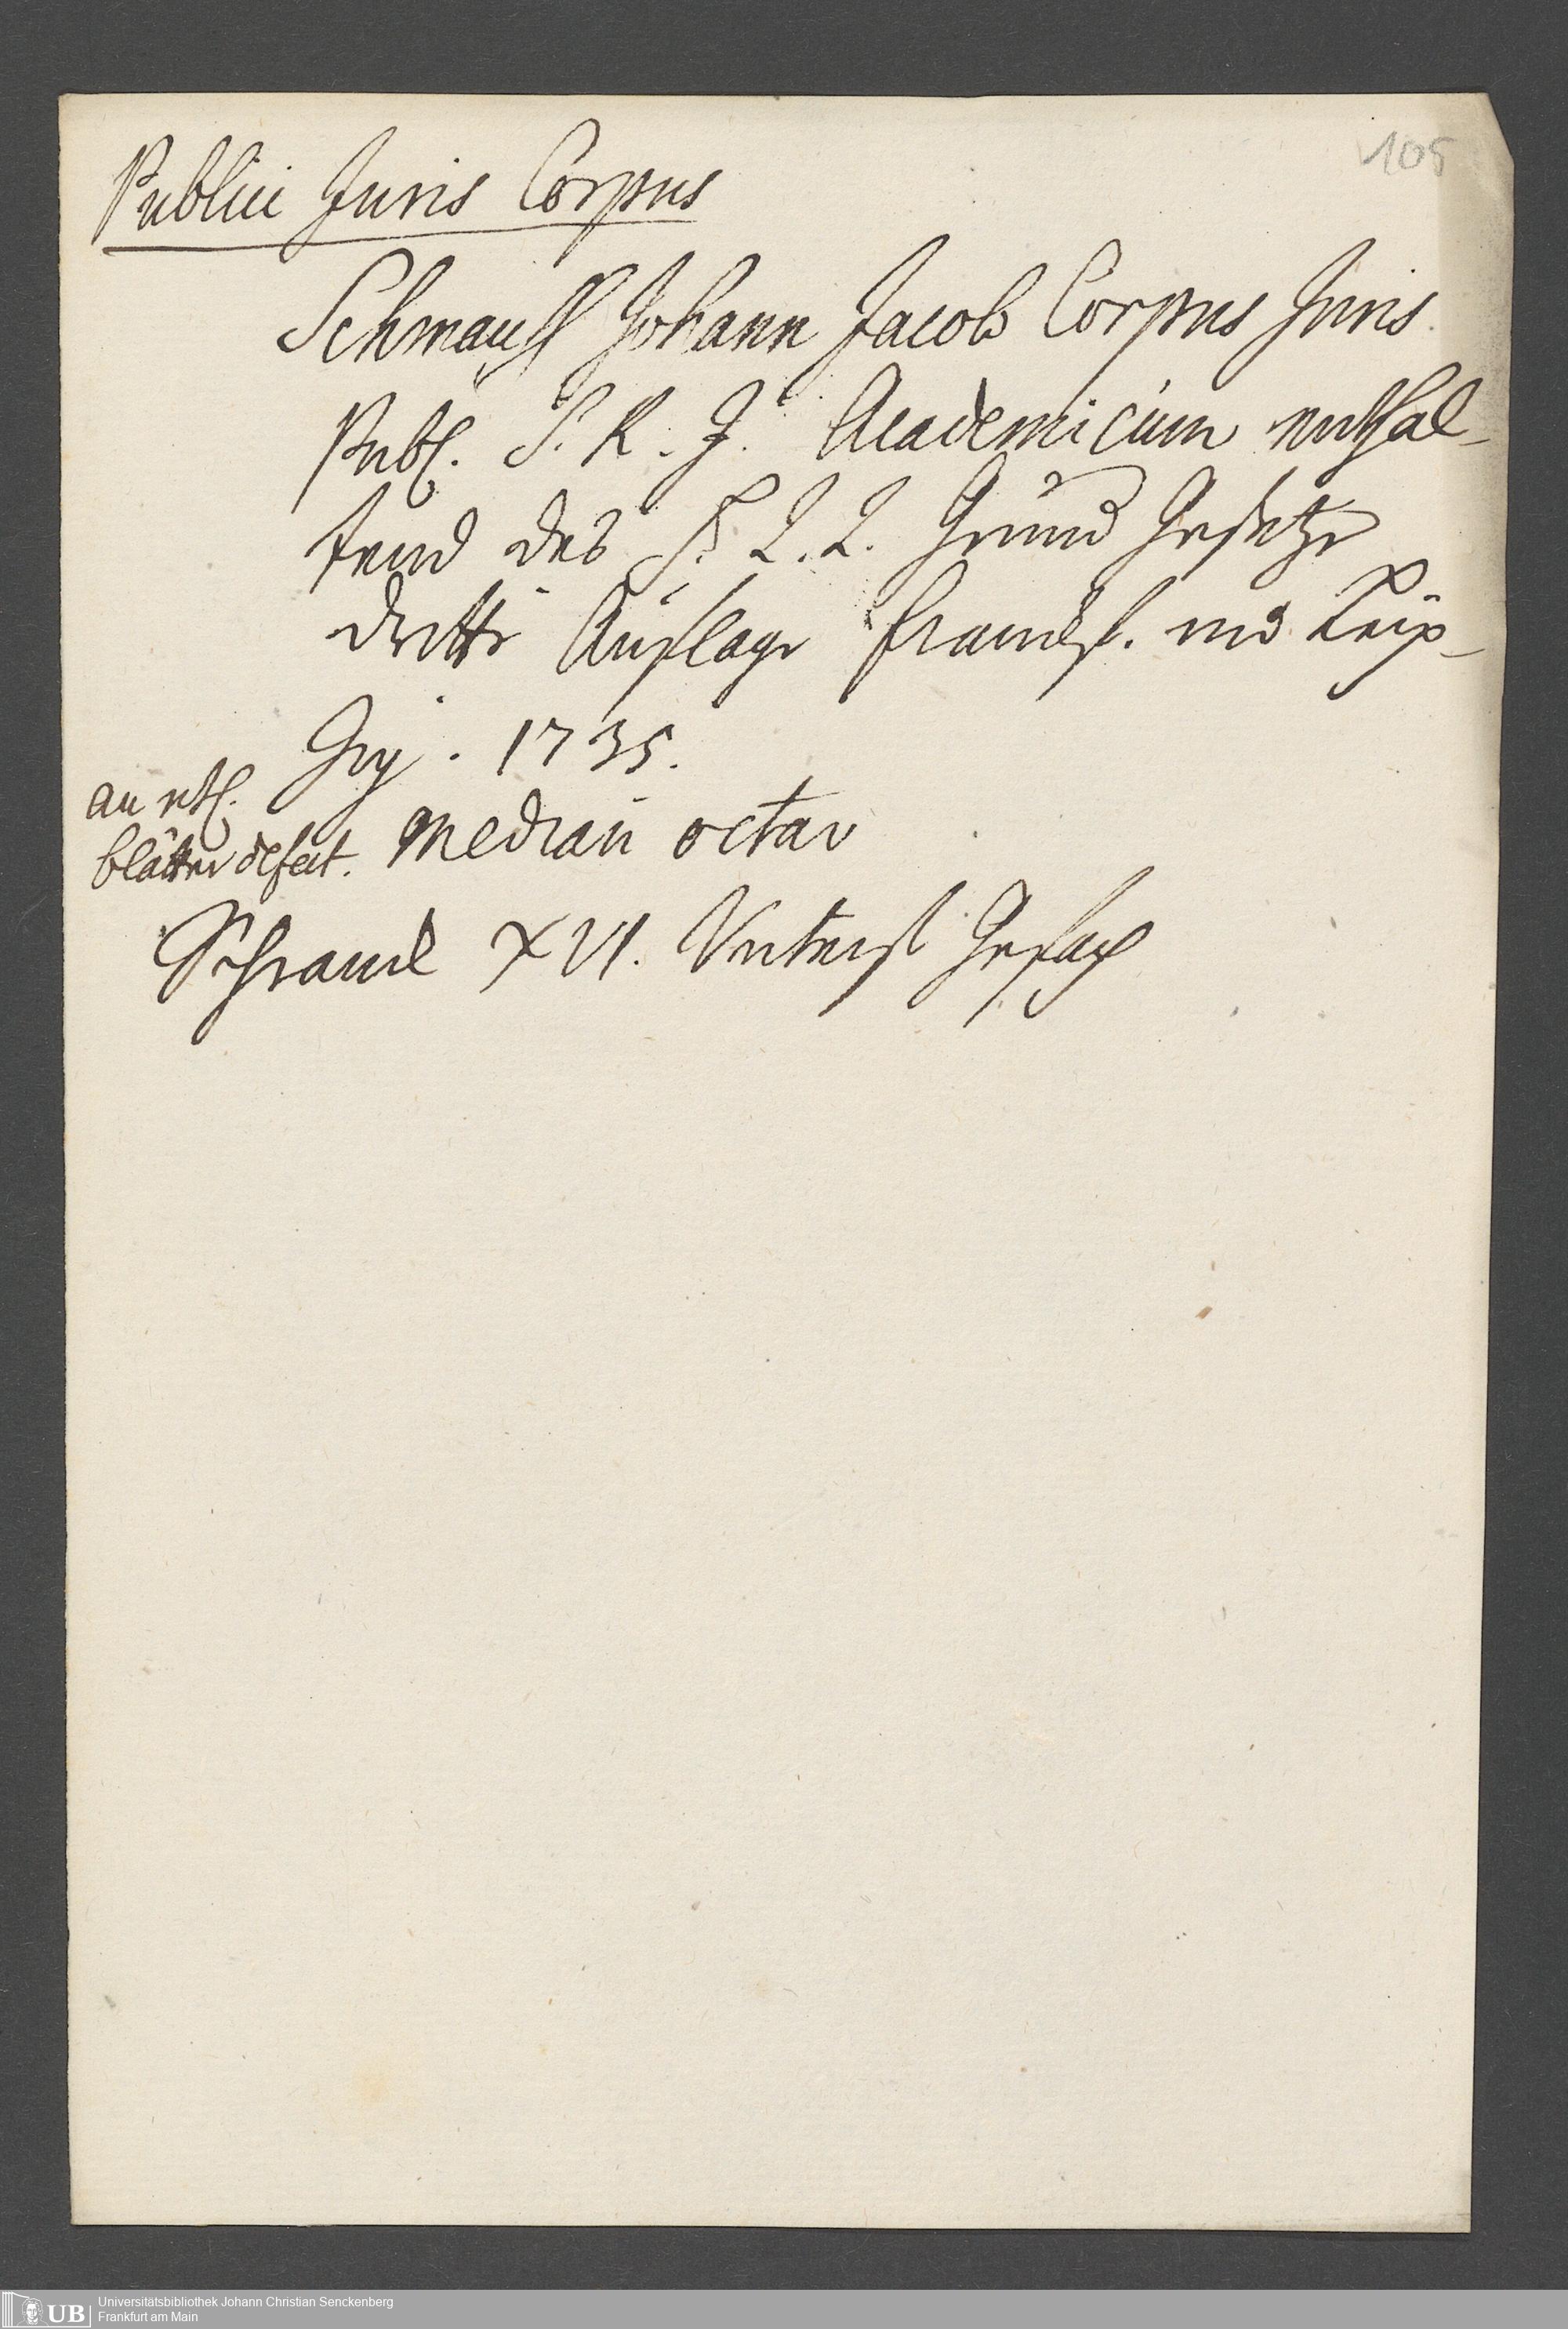 105
Publici Juris Corpus
Schmauß Johann Jacob Corpus Juris
Publ. S. R. J. Academicum enthal-
tend des H. R. R. Grund Gesetze
dritte Auflage Franckf. und Leip-
zig. 1735.
an etl.
blätter defect. Median octav
Schranck XVI. Unterst Gefach
UB Universitätsbibliothek Johann Christian Senckenberg
Frankfurt am Main